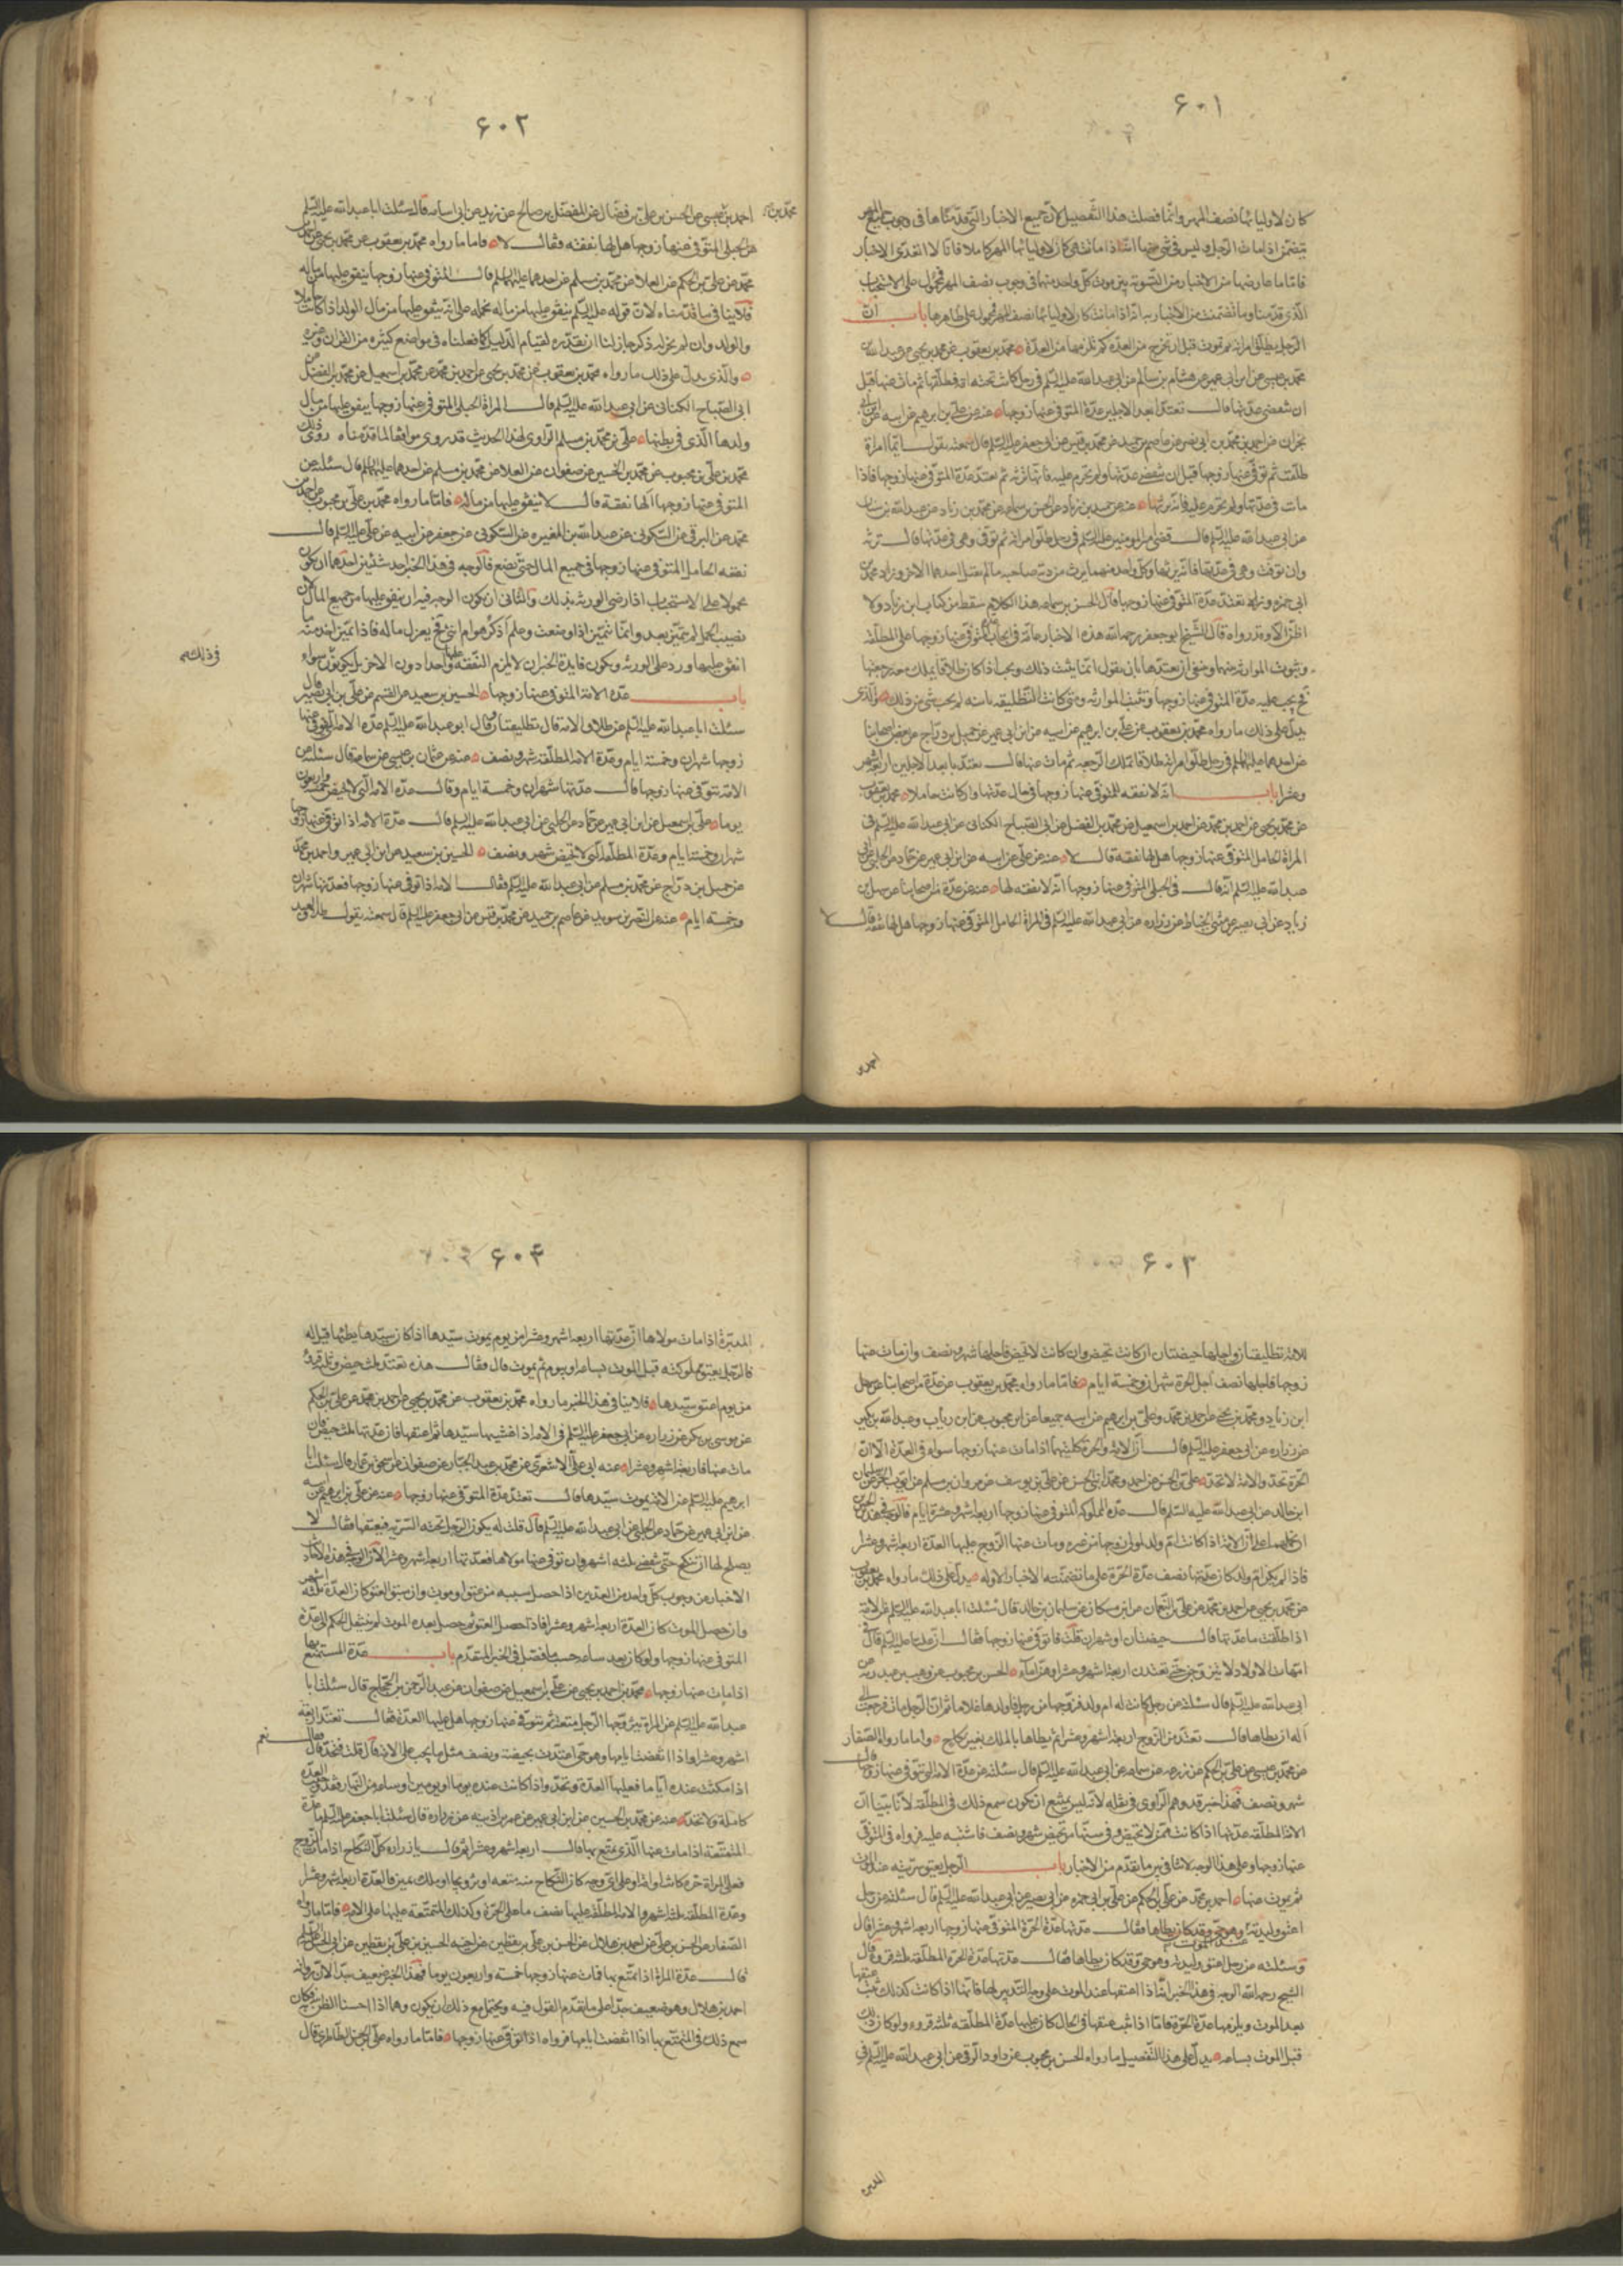 ۶۰۱
كان لاوليائها نصف المهر وانما فصلت هذا التفصيل لان جميع الاخبار التي قدمناها في وجوب جميع المهر
يتضمن اذا مات الرجل وليس في شيء منها انها اذا ماتت هي كان لاوليائها المهر كاملا فانا لا نتعدى الاخبار
فاما ما عارضها من الاخبار من التسوية بين موت كل واحد منهما في وجوب نصف المهر فمحمول على الاستحباب
الذي قدمناه وما تضمنت من الاخبار من انه اذا ماتت كان لاوليائها نصف المهر فمحمولة على ظاهرها باب ان
الرجل يطلق امراته ثم يموت قبل ان تخرج من العدة كم يلزمها من العدة محمد بن يعقوب عن محمد بن يحيى عن عبد الله بن
محمد بن عيسى عن ابن ابي عمير عن هشام بن سالم عن ابي عبد الله عليه السلم في رجل كانت تحته امراة فطلقها ثم مات عنها قبل
ان تنقضي عدتها قال تعتد ابعد الاجلين عدة المتوفى عنها زوجها عنه عن علي بن ابرهيم عن ابيه عن ابن ابي
نجران عن احمد بن محمد بن ابي نصر عن عاصم بن حميد عن محمد بن قيس عن ابي جعفر عليه السلم قال سمعته يقول ايما امراة
طلقت ثم توفى عنها زوجها قبل ان تنقضي عدتها ولم تحرم عليه فانها ترثه ثم تعتد عدة المتوفى عنها زوجها فاذا
مات في عدتها ولم تحرم عليه فانه يرثها عنه عن حميد بن زياد عن الحسن بن سماعه عن محمد بن زياد عن عبد الله بن سنان
عن ابي عبد الله عليه السلم قال قضى امير المومنين عليه السلم في رجل طلق امراته ثم توفى وهي في عدتها قال ترثه
وان توفت وهي في عدتها فانه يرثها وكل واحد منهما يرث من دية صاحبه ما لم يقتل احدهما الاخر وزاد محمد بن
ابي حمزه وتعتد عدة المتوفى عنها زوجها قال الحسن بن سماعه هذا الكلام سقط من كتاب ابن زياد ولا
اظن الا وقد رواه قال الشيخ ابو جعفر رحمه الله هذه الاخبار عامة في ايجاب عدة المتوفى عنها زوجها على المطلقة
وثبوت الموارثه بينهما
يدل على ذلك ما رواه محمد بن يعقوب عن علي بن ابرهيم عن ابيه عن ابن ابي عمير عن جميل بن دراج عن بعض اصحابنا
عن احدهما عليهما السلم في رجل طلق امراته طلاقا يملك الرجعه ثم مات عنها قال تعتد بابعد الاجلين اربعة اشهر
وعشرا باب انه لا نفقه للمتوفى عنها زوجها في حال عدتها وان كانت حاملا محمد بن يعقوب
عن محمد بن يحيى عن احمد بن محمد عن محمد بن اسمعيل عن محمد بن الفضيل عن ابي الصباح الكناني عن ابي عبد الله عليه السلم في
المراة الحامل المتوفى عنها زوجها هل لها نفقة قال لا عنه عن علي عن ابيه عن ابن ابي عمير عن حماد عن الحلبي عن ابي
عبد الله عليه السلم انه قال في الحبلى المتوفى عنها زوجها انه لا نفقه لها عنه عن عدة من اصحابنا عن سهل بن
زياد عن ابي نصر عن مثنى الخياط عن زراره عن ابي عبد الله عليه السلم في المراة الحامل المتوفى عنها زوجها هل لها نفقة قال لا
۶۰۲
احمد بن عيسى عن الحسن بن علي بن فضال عن المفضل بن صالح عن زيد عن ابي اسامه قال سئلت ابا عبد الله عليه السلم
عن الحبلى المتوفى عنها زوجها هل لها نفقة فقال لا فاما ما رواه محمد بن يعقوب عن محمد بن يحيى عن احمد بن
محمد عن علي بن الحكم عن العلا عن محمد بن مسلم عن احدهما عليهما السلم قال المتوفى عنها زوجها ينفق عليها من ماله
فلا ينافي ما قدمناه لان قوله عليه السلم ينفق عليها من ماله نحمله على انه ينفق عليها من مال الولد اذا كانت حاملا
والولد وان لم يجر له ذكر جاز لنا ان نقدره لقيام الدليل كما فعلناه في مواضع كثيره من القران وغيره
والذي يدل على ذلك ما رواه محمد بن يعقوب عن محمد بن يحيى عن احمد بن محمد عن محمد بن اسمعيل عن محمد بن الفضيل عن
ابي الصباح الكناني عن ابي عبد الله عليه السلم قال المراة الحبلى المتوفى عنها زوجها ينفق عليها من مال
ولدها الذي في بطنها على ان محمد بن مسلم الراوي لهذا الحديث قد روى موافقا لما قدمناه روى ذلك
محمد بن علي بن محبوب عن محمد بن الحسين عن صفوان عن العلا عن محمد بن مسلم عن احدهما عليهما السلم قال سئلته عن
المتوفى عنها زوجها الها نفقة قال لا ينفق عليها من ماله فاما ما رواه محمد بن علي بن محبوب عن احمد بن
محمد عن البرقي عن السكوني عن عبد الله بن المغيره عن السكوني عن جعفر عن ابيه عن علي عليه السلم قال
نفقه الحامل المتوفى عنها زوجها في جميع المال حتى تضع فالوجه في هذا الخبر احد شيئين احدهما ان يكون
محمولا على الاستحباب اذا رضي الورثه بذلك والثاني ان يكون الوجه فيه ان ينفق عليها من جميع المال لان
نصيب الحمل لم يتميز بعد وانما يتميز اذا وضعت وعلم اذكر هو ام انثى فح يعزل ماله فاذا تميز اخذ منه ما
انفق عليها ورد على الورثه
باب عدة الامة المتوفى عنها زوجها الحسين بن سعيد عن القسم عن علي عن ابي بصير قال
سئلت ابا عبد الله عليه السلم عن طلاق الامة قال تطليقتان وقال ابو عبد الله عليه السلم عدة الامة التي توفى عنها
زوجها شهران وخمسة ايام وعدة الامه المطلقة شهر ونصف عنه عن عثمان بن عيسى عن سماعه قال سئلته عن
الامة يتوفى عنها زوجها قال عدتها شهران وخمسة ايام وقال عدة الامة التي لا تحيض خمسة واربعون
يوما علي بن اسمعيل عن ابن ابي عمير عن حماد عن الحلبي عن ابي عبد الله عليه السلم قال عدة الامة اذا توفى عنها زوجها
شهران وخمسة ايام وعدة المطلقة التي لا تحيض شهر ونصف الحسين بن سعيد عن ابن ابي عمير واحمد بن محمد
عن جميل بن دراج عن محمد بن مسلم عن ابي عبد الله عليه السلم قال الامة اذا توفى عنها زوجها فعدتها شهران
وخمسة ايام عنه عن النضر بن سويد عن عاصم بن حميد عن محمد بن قيس عن ابي جعفر عليه السلم قال سمعته يقول طلاق العبد
۶۰۳
للامة تطليقتان واجلها حيضتان ان كانت تحيض وان كانت لا تحيض فاجلها شهر ونصف وان مات عنها
زوجها فاجلها نصف اجل الحرة شهران وخمسة ايام فاما ما رواه محمد بن يعقوب عن عدة من اصحابنا عن سهل
ابن زياد ومحمد بن يحيى عن احمد بن محمد وعلي بن ابرهيم عن ابيه جميعا عن ابن محبوب عن ابن رياب وعبد الله بن بكير
عن زراره عن ابي جعفر عليه السلم قال ان الامة والحرة كلتيهما اذا مات عنها زوجها سواء في العدة الا ان
الحرة تحد والامة لا تحد علي بن الحسن عن احمد ومحمد ابني الحسن عن علي بن يوسف عن مروان بن مسلم عن ايوب بن الحر عن سليمان
ابن خالد عن ابي عبد الله عليه السلم قال عدة المملوكة المتوفى عنها زوجها اربعة اشهر وعشرة ايام فالوجه في هذين الخبرين
ان نحملهما على ان الامة اذا كانت ام ولد لمولى زوجها من غيره ومات عنها الزوج عليها العدة اربعة اشهر وعشرا
فاذا لم يكن ام ولد كان عدتها نصف عدة الحرة على ما تضمنته الاخبار الاوله يدل على ذلك ما رواه محمد بن يعقوب
عن محمد بن يحيى عن احمد بن محمد عن علي بن النعمان عن ابن مسكان عن سليمان بن خالد قال سئلت ابا عبد الله عليه السلم عن الامة
اذا طلقت ما عدتها قال حيضتان او شهران قلت فان توفى عنها زوجها فقال ان عليا عليه السلم قال في
امهات الاولاد لا يتزوجن حتى يعتددن اربعة اشهر وعشرا وهن اماء الحسن بن محبوب عن وهب بن عبد ربه عن
ابي عبد الله عليه السلم قال سئلته عن رجل كانت له ام ولد فزوجها من رجل فاولدها غلاما ثم ان الرجل مات فرجعت الى سيدها
اله ان يطاها قال تعتد من الزوج اربعة اشهر وعشرا ثم يطاها بالملك بغير نكاح واما ما رواه الصفار
عن محمد بن عيسى عن علي بن الحكم عن زرعه عن سماعه عن ابي عبد الله عليه السلم قال سئلته عن عدة الامة التي توفى عنها زوجها قال
شهر ونصف فهذا خبر قد وهم الراوي في نقله لانه ليس يمتنع ان يكون سمع ذلك في المطلقة لانا بينا ان
الامة المطلقه عدتها اذا كانت ممن لا تحيض وفي سنها من تحيض شهر ونصف فاشتبه عليه فرواه في المتوفى
عنها زوجها وعلى هذا الوجه لا تنافي بين ما تقدم من الاخبار باب الرجل يعتق سريته عند الموت
ثم يموت عنها احمد بن محمد عن علي بن الحكم عن علي بن ابي حمزه عن ابي بصير عن ابي عبد الله عليه السلم قال سئلته عن رجل
اعتق وليدته عند الموت فقال عدتها عدة الحرة المتوفى عنها زوجها اربعة اشهر وعشرا قال
وسئلته عن رجل اعتق وليدته وهو حي وقد كان يطاها فقال عدتها عدة الحرة المطلقه ثلثة قروء قال
الشيخ رحمه الله الوجه في هذا الخبر انه اذا اعتقها عند الموت على وجه التدبير لها فانها اذا كانت كذلك تعتد
بعد الموت ويلزمها عدة الحرة فاما اذا بت عتقها في الحال كان عليها عدة المطلقه ثلثة قروء ولو كان ذلك
قبل الموت بساعه يدل على هذا التفصيل ما رواه الحسن بن محبوب عن داود الرقي عن ابي عبد الله عليه السلم في
المدبره
۶۰۴
المدبرة اذا مات مولاها ان عدتها اربعة اشهر وعشرا من يوم يموت سيدها اذا كان سيدها يطئها قيل له
فالرجل يعتق مملوكته قبل الموت بساعه او بيوم ثم يموت قال فقال هذه تعتد بثلث حيض او ثلثة قروء
من يوم اعتق سيدها فلا ينافي هذا الخبر ما رواه محمد بن يعقوب عن محمد بن يحيى عن احمد بن محمد عن علي بن الحكم
عن موسى بن بكر عن زراره عن ابي جعفر عليه السلم في الامة اذا غشيها سيدها ثم اعتقها فان عدتها ثلث حيض فان
مات عنها فاربعة اشهر وعشرا عنه عن ابي علي الاشعري عن محمد بن عبد الجبار عن صفوان عن اسحق بن عمار قال سئلت ابا
ابرهيم عليه السلم عن الامة يموت سيدها قال تعتد عدة المتوفى عنها زوجها عنه عن علي بن ابرهيم عن ابيه
عن ابن ابي عمير عن حماد عن الحلبي عن ابي عبد الله عليه السلم قال قلت له يكون الرجل تحته السرية فيعتقها فقال لا
يصلح لها ان تنكح حتى تنقضي ثلثة اشهر وان توفى عنها مولاها فعدتها اربعة اشهر وعشرا لان الوجه في هذه
الاخبار من وجوب كل واحد من العدتين اذا حصل سببه من عتق او موت وان سبق العتق كان العدة ثلثة اشهر
وان حصل الموت كان العدة اربعة اشهر وعشرا فاذا حصل العتق ثم حصل بعده الموت لم ينتقل الحكم الى عدة
المتوفى عنها زوجها ولو كان بعد ساعه حسب ما فصل في الخبر المتقدم باب عدة المتمتع بها
اذا مات عنها زوجها محمد بن احمد بن يحيى عن علي بن اسمعيل عن صفوان عن عبد الرحمن بن الحجاج قال سئلت ابا
عبد الله عليه السلم عن المراة يتزوجها الرجل متعة ثم يتوفى عنها زوجها هل عليها العدة فقال تعتد اربعة
اشهر وعشرا واذا انقضت ايامها وهو حي اعتدت بحيضة ونصف مثل ما يجب على الامة قال قلت فتحد قال فقال نعم
اذا مكثت عنده اياما فعليها العدة وتحد واذا كانت عنده يوما او يومين او ساعه من النهار فقد وجبت العدة
كاملة ولا تحد عنه عن محمد بن الحسين عن ابن ابي عمير عن عمر بن اذينه عن زراره قال سئلت ابا جعفر عليه السلم ما عدة
المتمتعة اذا مات عنها الذي تمتع بها قال اربعة اشهر وعشرا ثم قال يا زراره كل النكاح اذا مات الزوج
فعلى المراة حرة كانت او امة او على اي وجه كان النكاح منه متعة او تزويجا او ملك يمين فالعدة اربعة اشهر وعشرا
وعدة المطلقة ثلثة اشهر والامة المطلقة عليها نصف ما على الحرة وكذلك المتمتعة عليها ما على الامة فاما ما رواه
الصفار عن الحسن بن علي عن احمد بن هلال عن الحسن بن علي بن يقطين عن اخيه الحسين بن علي بن يقطين عن ابي الحسن عليه السلم
قال عدة المراة اذا تمتع بها فمات عنها زوجها خمسة واربعون يوما فهذا الخبر ضعيف جدا لان رواته
احمد بن هلال وهو ضعيف جدا على ما تقدم القول فيه ويحتمل مع ذلك ان يكون وهما اذا احسنا الظن به فكان
سمع ذلك في المتمتع بها اذا انقضت ايامها فرواه اذا توفى عنها زوجها فاما ما رواه علي بن الحسن الطاطري قال